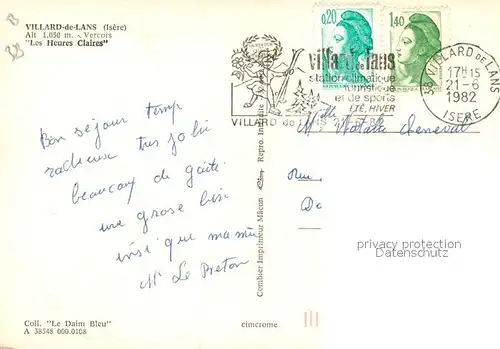 B
38
VILLARD-de-LANS (Isère)
Alt 1.050 m. - Vercors
"Les Heures Claires"
0,20
1,40
villard de lans
station climatique
touristique
et de sports
ÉTÉ, HIVER
VILLARD de
38 VILLARD DE LANS
17H15
21-6
1982
ISERE
Bon séjour temp
radieux tres joli
beaucoup de gaité
une grose bise
que ma
Mr Le Preton
Melle Natalie
Combier Imprimeur Mâcon Cim Repro. Interdite
privacy protection
Datenschutz
Coll. "Le Daim Bleu"
A 38548 000.0108
cimcrome